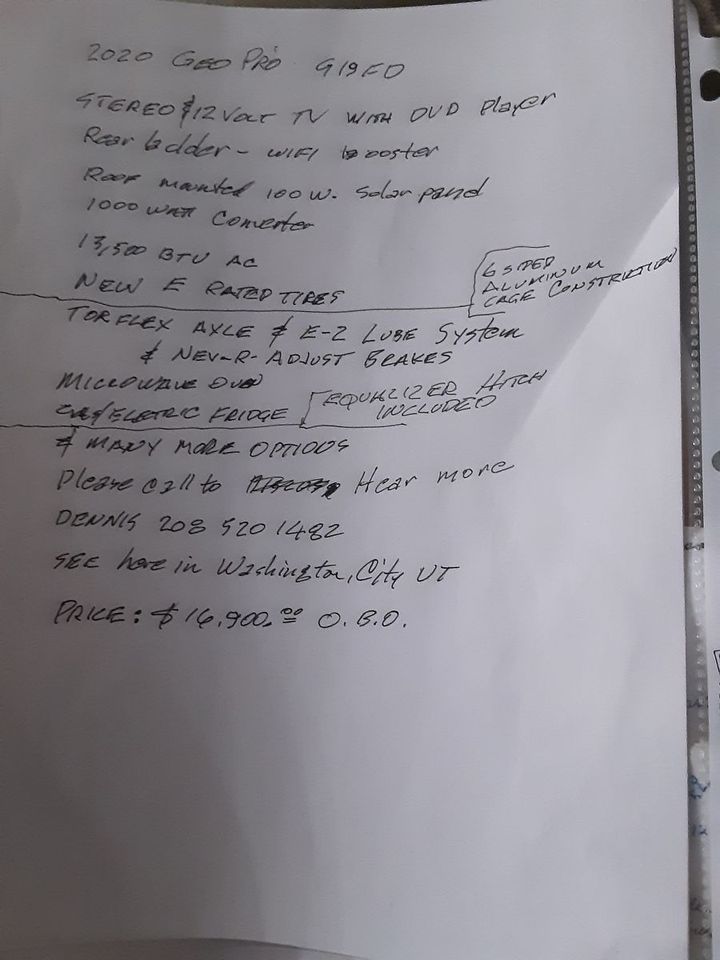 2020 GEO PRO G19FD
STEREO & 12 VOLT TV WITH DVD Player
Rear ladder - WIFI booster
ROOF mounted 100 W. Solar panel
1000 WATT Converter
13,500 BTU AC
NEW E RATED TIRES
6 SIDED
ALUMINUM
CAGE CONSTRUTION
TORFLEX AXLE & E-Z LUBE System
& NEV-R-ADJUST BRAKES
MICROWAVE OVEN
/ELETRIC FRIDGE
EQUALIZER HITCH
INCLUDED
& MANY MORE OPTIONS
Please call to Hear more
DENNIS 208 520 1482
SEE here in Washington, City UT
PRICE: $16,900.00 O.B.O.